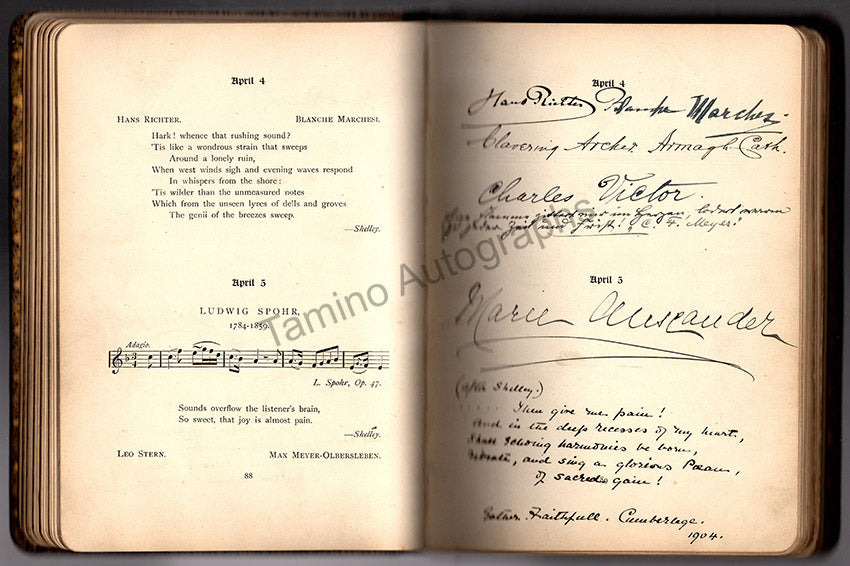 April 4
HANS RICHTER. BLANCHE MARCHESI.
Hark! whence that rushing sound?
'Tis like a wondrous strain that sweeps
Around a lonely ruin,
When west winds sigh and evening waves respond
In whispers from the shore:
'Tis wilder than the unmeasured notes
Which from the unseen lyres of dells and groves
The genii of the breezes sweep.
—Shelley.
April 5
LUDWIG SPOHR,
1784-1859.
Adagio.
L. Spohr, Op. 47.
Sounds overflow the listener's brain,
So sweet, that joy is almost pain.
—Shelley.
LEO STERN. MAX MEYER-OLBERSLEBEN.
88
April 4
Hans Richter Blanche Marchesi
Clavering Archer Armagh Cath.
Charles Victor.
im Herzen, lodert warm
zu jeder Zeit und Frist. C. F. Meyer
April 5
Marie Alexander
(after Shelley)
Then give me pain!
And in the deep recesses of my heart,
Shall echoing harmonies be born,
Vibrate, and sing a glorious Pæan,
of sacred gain!
Faithfull. Cumberlege.
1904.
Tamino Autographs